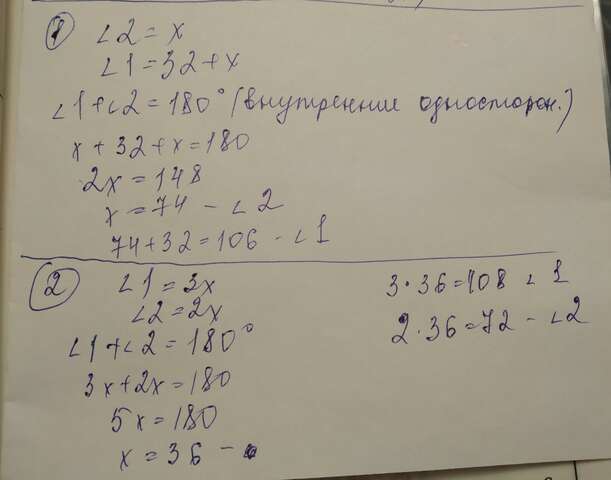 1
∠2 = x
∠1 = 32 + x
∠1 + ∠2 = 180° (внутренние односторон.)
x + 32 + x = 180
2x = 148
x = 74 – ∠2
74 + 32 = 106 – ∠1
2
∠1 = 3x
∠2 = 2x
∠1 + ∠2 = 180°
3x + 2x = 180
5x = 180
x = 36 –
3 · 36 = 108 ∠1
2 · 36 = 72 – ∠2